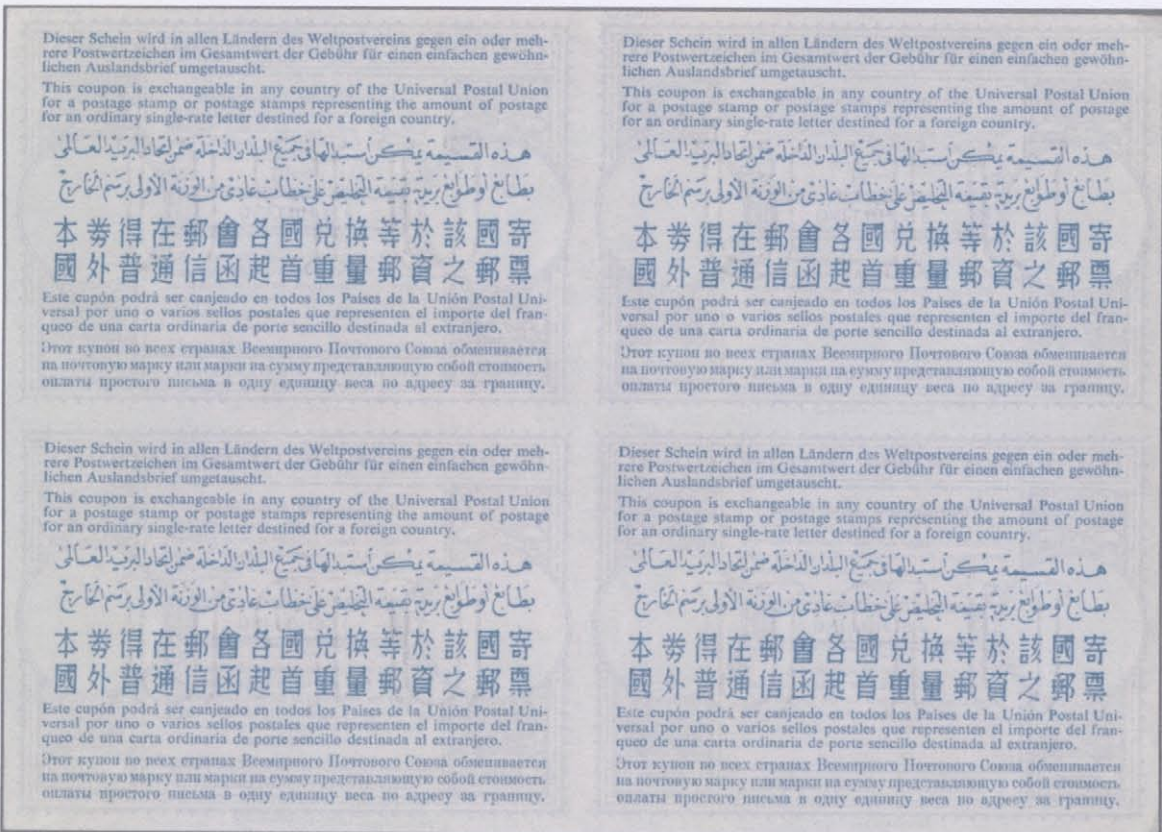 Dieser Schein wird in allen Ländern des Weltpostvereins gegen ein oder meh-
rere Postwertzeichen im Gesamtwert der Gebühr für einen einfachen gewöhn-
lichen Auslandsbrief umgetauscht.
This coupon is exchangeable in any country of the Universal Postal Union
for a postage stamp or postage stamps representing the amount of postage
for an ordinary single-rate letter destined for a foreign country.
هذه القسيمة يمكن استبدالها فى جميع البلدان الداخلة ضمن اتحاد البريد العالمى
بطابع أو طوابع بريدية بقيمة التخليص على خطاب عادى من الوزنة الأولى برسم الخارج
本劵得在郵會各國兌換等於該國寄
國外普通信函起首重量郵資之郵票
Este cupón podrá ser canjeado en todos los Países de la Unión Postal Uni-
versal por uno o varios sellos postales que representen el importe del fran-
queo de una carta ordinaria de porte sencillo destinada al extranjero.
Этот купон во всех странах Всемирного Почтового Союза обменивается
на почтовую марку или марки на сумму представляющую собой стоимость
оплаты простого письма в одну единицу веса по адресу за границу.
Dieser Schein wird in allen Ländern des Weltpostvereins gegen ein oder meh-
rere Postwertzeichen im Gesamtwert der Gebühr für einen einfachen gewöhn-
lichen Auslandsbrief umgetauscht.
This coupon is exchangeable in any country of the Universal Postal Union
for a postage stamp or postage stamps representing the amount of postage
for an ordinary single-rate letter destined for a foreign country.
هذه القسيمة يمكن استبدالها فى جميع البلدان الداخلة ضمن اتحاد البريد العالمى
بطابع أو طوابع بريدية بقيمة التخليص على خطاب عادى من الوزنة الأولى برسم الخارج
本劵得在郵會各國兌換等於該國寄
國外普通信函起首重量郵資之郵票
Este cupón podrá ser canjeado en todos los Países de la Unión Postal Uni-
versal por uno o varios sellos postales que representen el importe del fran-
queo de una carta ordinaria de porte sencillo destinada al extranjero.
Этот купон во всех странах Всемирного Почтового Союза обменивается
на почтовую марку или марки на сумму представляющую собой стоимость
оплаты простого письма в одну единицу веса по адресу за границу.
Dieser Schein wird in allen Ländern des Weltpostvereins gegen ein oder meh-
rere Postwertzeichen im Gesamtwert der Gebühr für einen einfachen gewöhn-
lichen Auslandsbrief umgetauscht.
This coupon is exchangeable in any country of the Universal Postal Union
for a postage stamp or postage stamps representing the amount of postage
for an ordinary single-rate letter destined for a foreign country.
هذه القسيمة يمكن استبدالها فى جميع البلدان الداخلة ضمن اتحاد البريد العالمى
بطابع أو طوابع بريدية بقيمة التخليص على خطاب عادى من الوزنة الأولى برسم الخارج
本劵得在郵會各國兌換等於該國寄
國外普通信函起首重量郵資之郵票
Este cupón podrá ser canjeado en todos los Países de la Unión Postal Uni-
versal por uno o varios sellos postales que representen el importe del fran-
queo de una carta ordinaria de porte sencillo destinada al extranjero.
Этот купон во всех странах Всемирного Почтового Союза обменивается
на почтовую марку или марки на сумму представляющую собой стоимость
оплаты простого письма в одну единицу веса по адресу за границу.
Dieser Schein wird in allen Ländern des Weltpostvereins gegen ein oder meh-
rere Postwertzeichen im Gesamtwert der Gebühr für einen einfachen gewöhn-
lichen Auslandsbrief umgetauscht.
This coupon is exchangeable in any country of the Universal Postal Union
for a postage stamp or postage stamps representing the amount of postage
for an ordinary single-rate letter destined for a foreign country.
هذه القسيمة يمكن استبدالها فى جميع البلدان الداخلة ضمن اتحاد البريد العالمى
بطابع أو طوابع بريدية بقيمة التخليص على خطاب عادى من الوزنة الأولى برسم الخارج
本劵得在郵會各國兌換等於該國寄
國外普通信函起首重量郵資之郵票
Este cupón podrá ser canjeado en todos los Países de la Unión Postal Uni-
versal por uno o varios sellos postales que representen el importe del fran-
queo de una carta ordinaria de porte sencillo destinada al extranjero.
Этот купон во всех странах Всемирного Почтового Союза обменивается
на почтовую марку или марки на сумму представляющую собой стоимость
оплаты простого письма в одну единицу веса по адресу за границу.